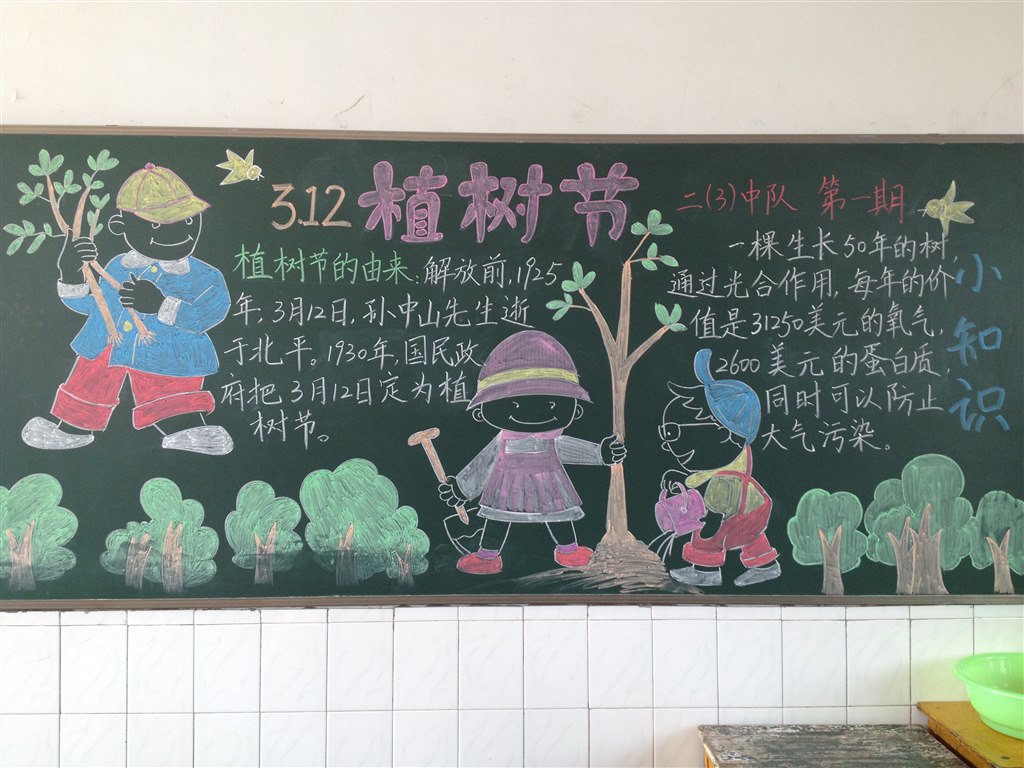 312 植树节
二(3)中队 第一期
植树节的由来:解放前,1925
年,3月12日,孙中山先生逝
于北平。1930年,国民政
府把3月12日定为植
树节。
一棵生长50年的树,
通过光合作用,每年的价
值是31250美元的氧气,
2600美元的蛋白质,
同时可以防止
大气污染。
小知识